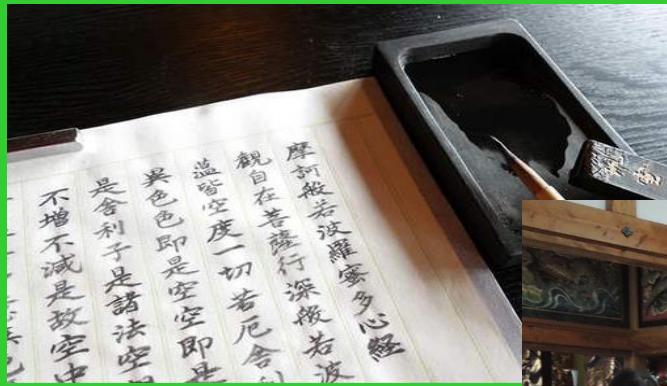 摩訶般若波羅蜜多心経
観自在菩薩行深般若波
蘊皆空度一切苦厄舎利
異色色即是空空即是
是舎利子是諸法空
不増不減是故空中